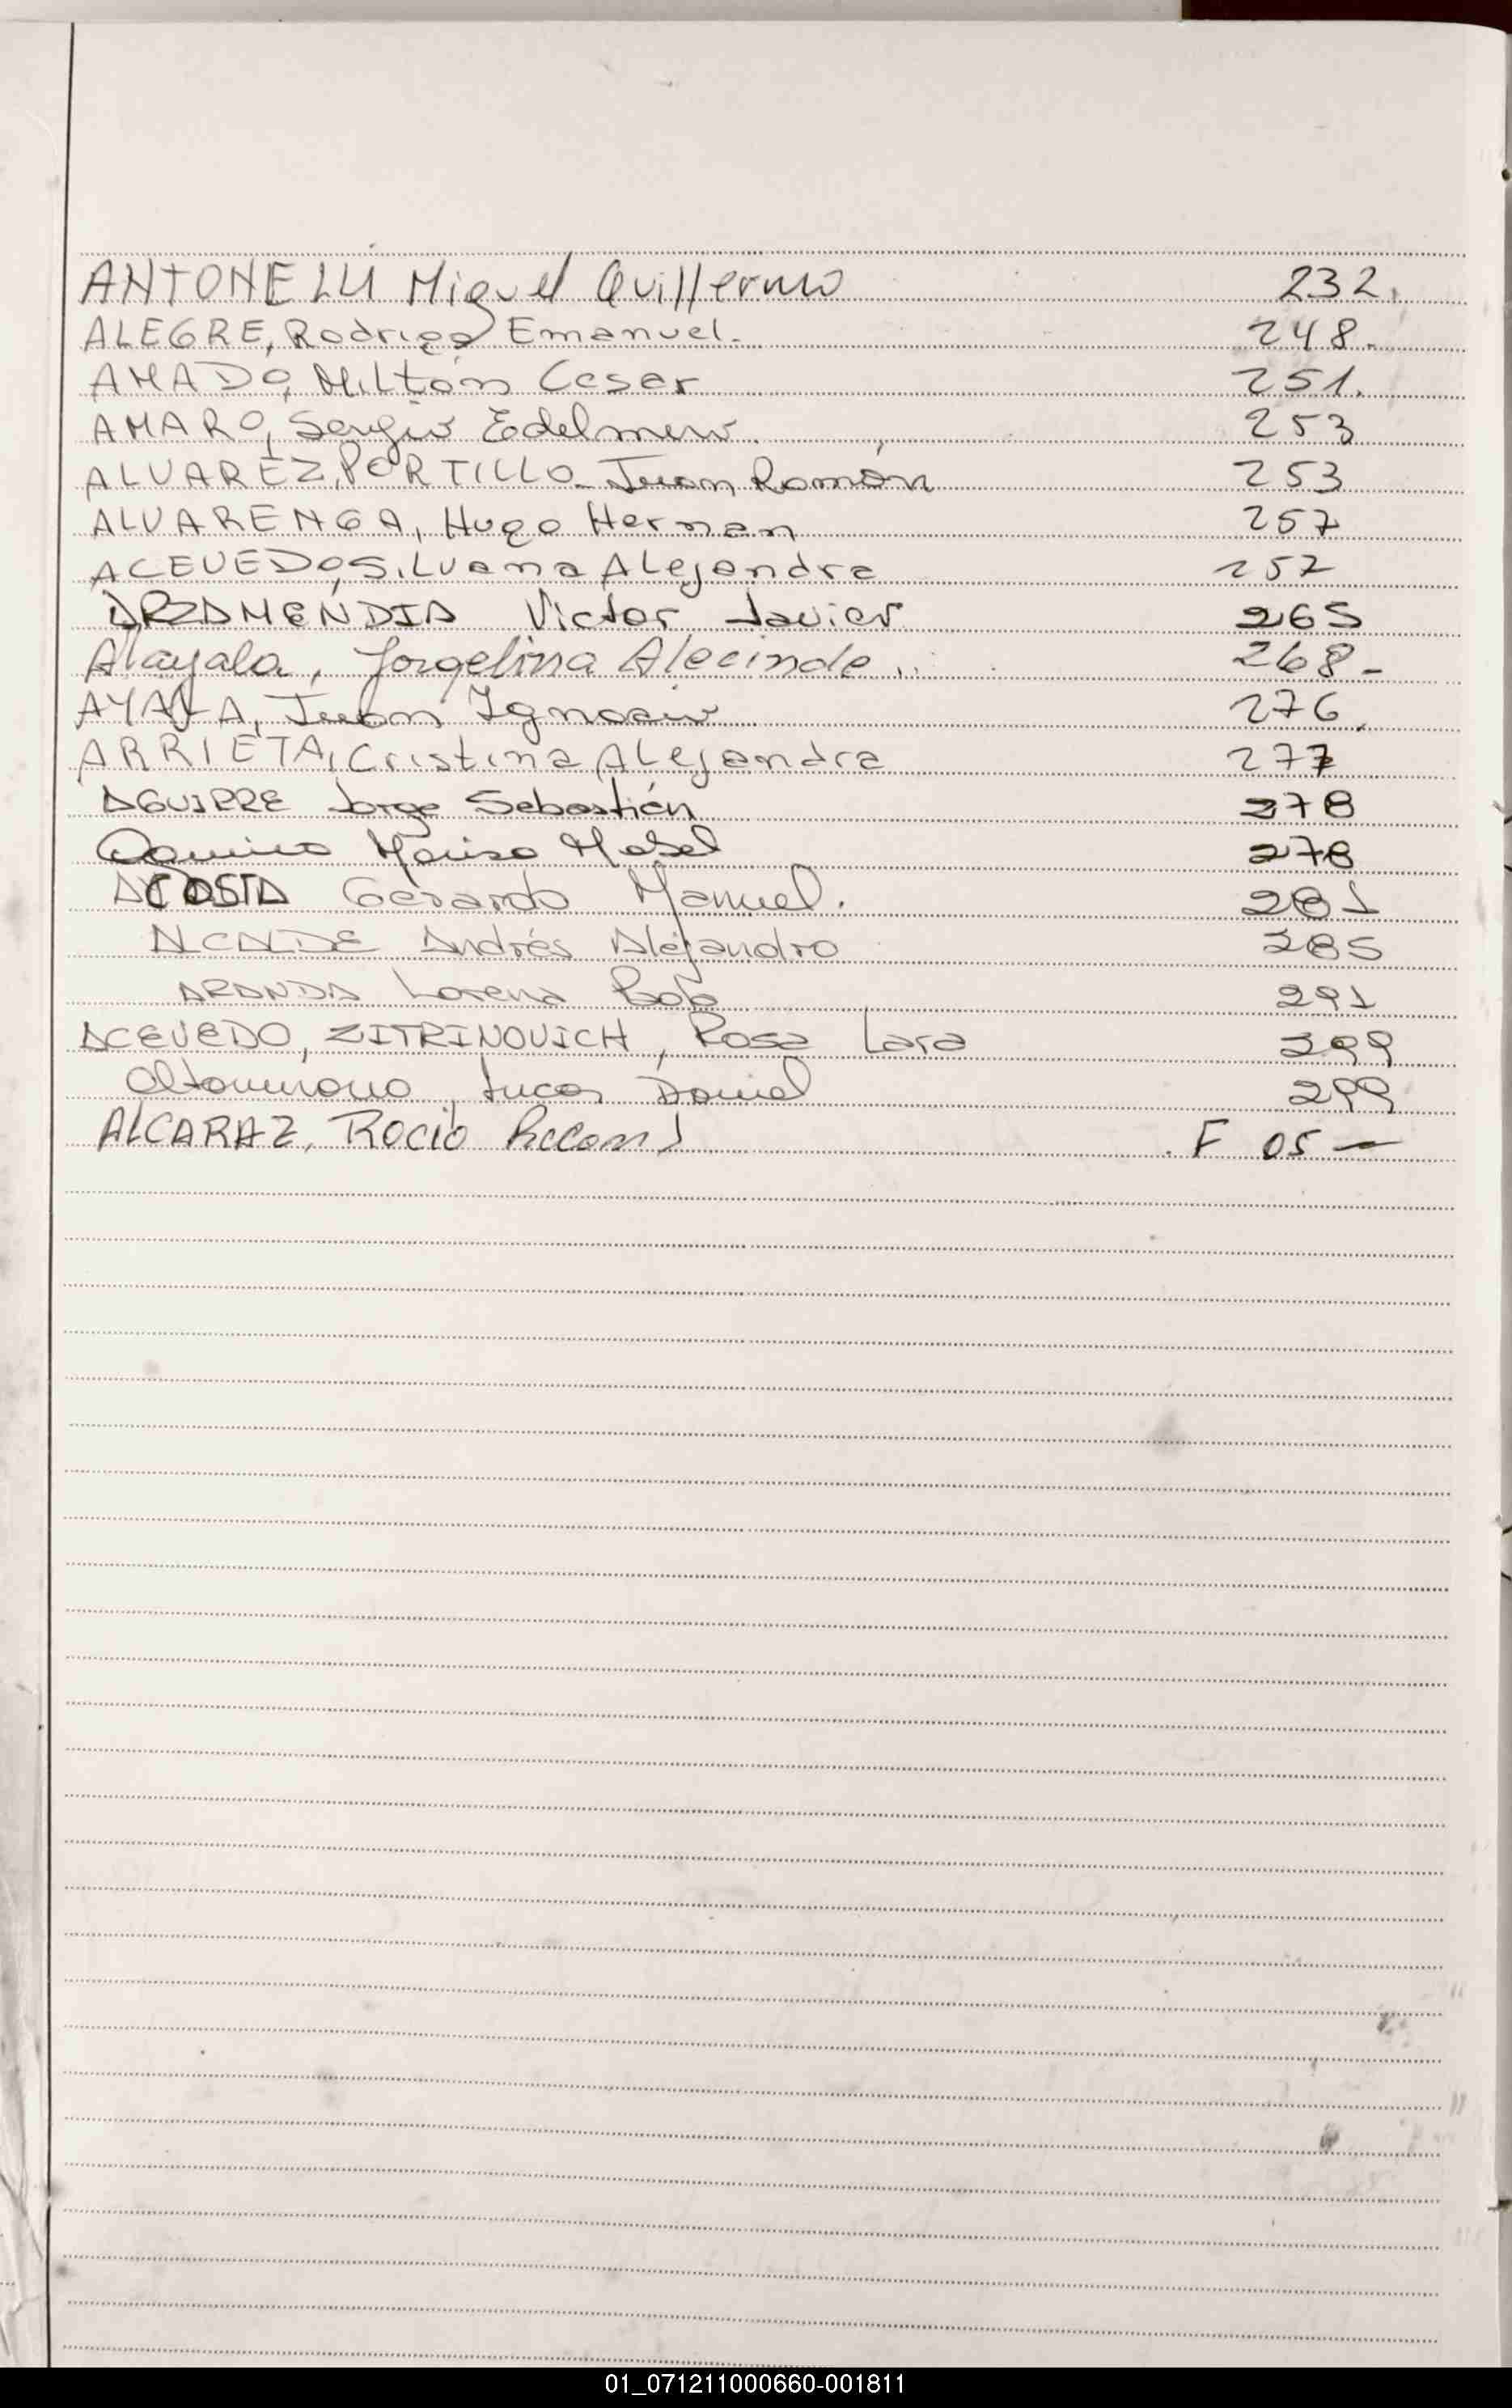 ANTONELLI Miguel Guillermo 232.
ALEGRE, Rodrigo Emanuel. 248.
AMADO, Milton Cesar 251.
AMARO, Sergio Edelmiro. 253
ALVAREZ, PORTILLO Juan Román 253
ALVARENGA, Hugo Hernan 257
ACEVEDO, Silvana Alejandra 257
ARZAMENDIA Victor Javier 265
Alayala, Jorgelina 268-
AYALA, Juan Ignacio 276.
ARRIETA, Cristina Alejandra 277
AGUIRRE Jorge Sebastián 278
Marisa Mabel 278
ACOSTA Gerardo Manuel. 281
ALCALDE Andrés Alejandro 285
ARANDA Lorena 291
ACEVEDO, ZITRINOVICH, Rosa Lara 299
Altamirano, Lucas Daniel 299
ALCARAZ, ROCIO F 05-
01_071211000660-001811